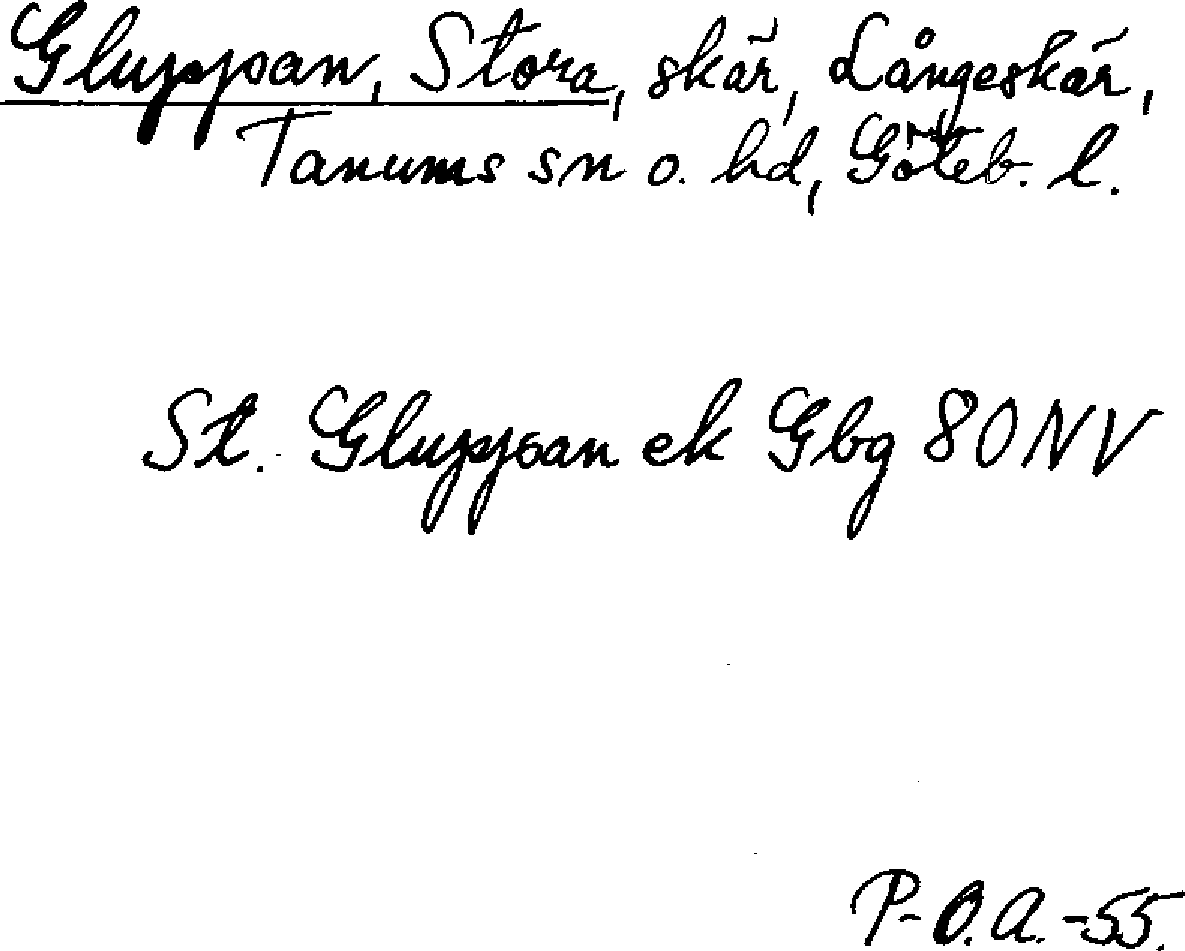 Gluppan, Stora, skär, Långeskär,
Tanums sn o. hd, Göteb. l.
St. Gluppan ek Gbg 80 NV
P-O.A.-55.